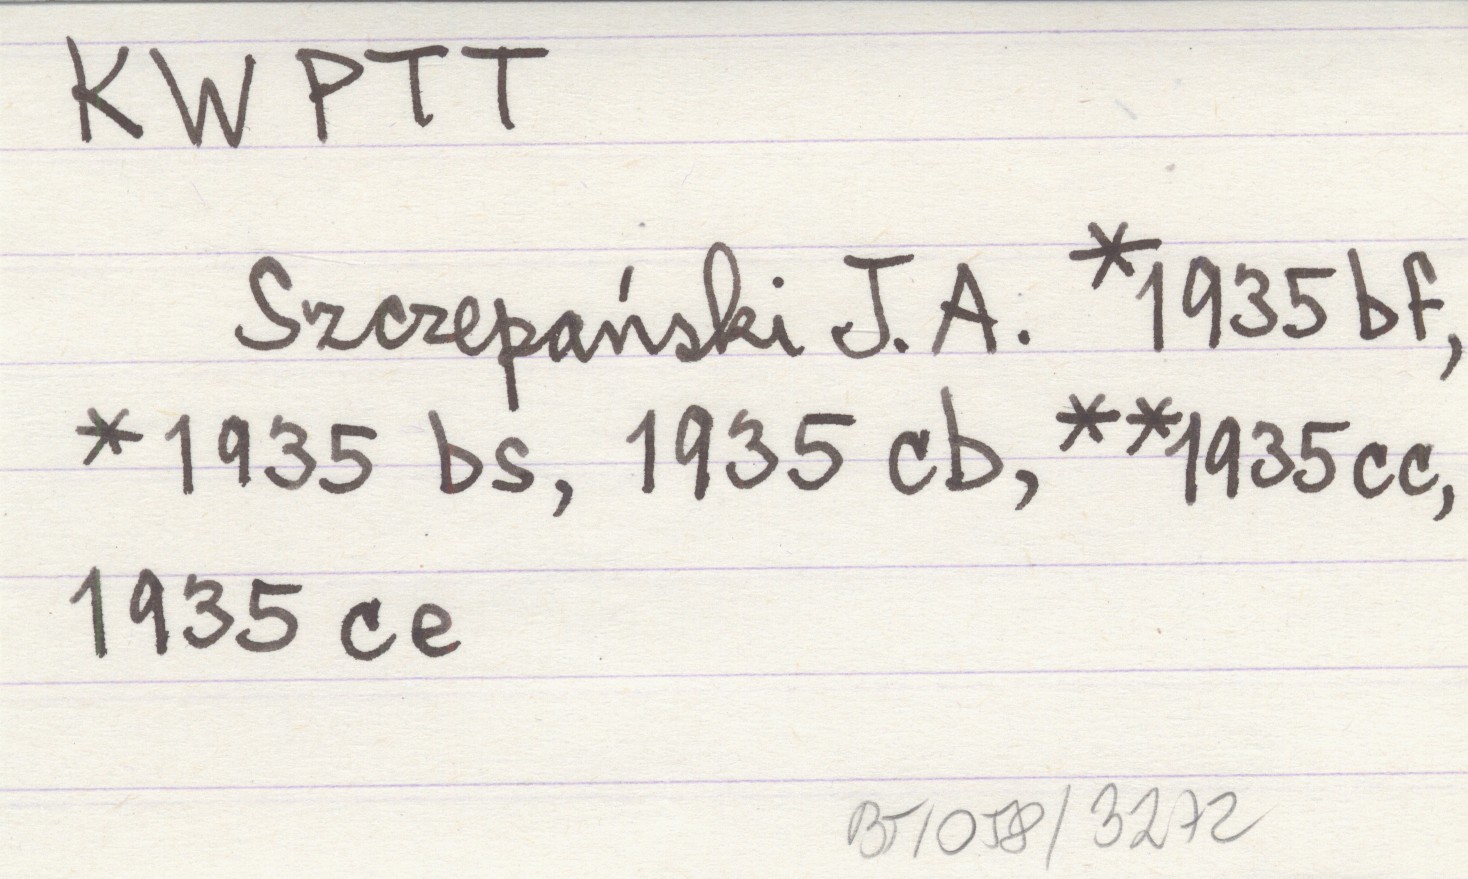 KW PTT
Szczepański J. A. *1935 bf,
*1935 bs, 1935 cb, **1935 cc,
1935 ce
BT/058/3272